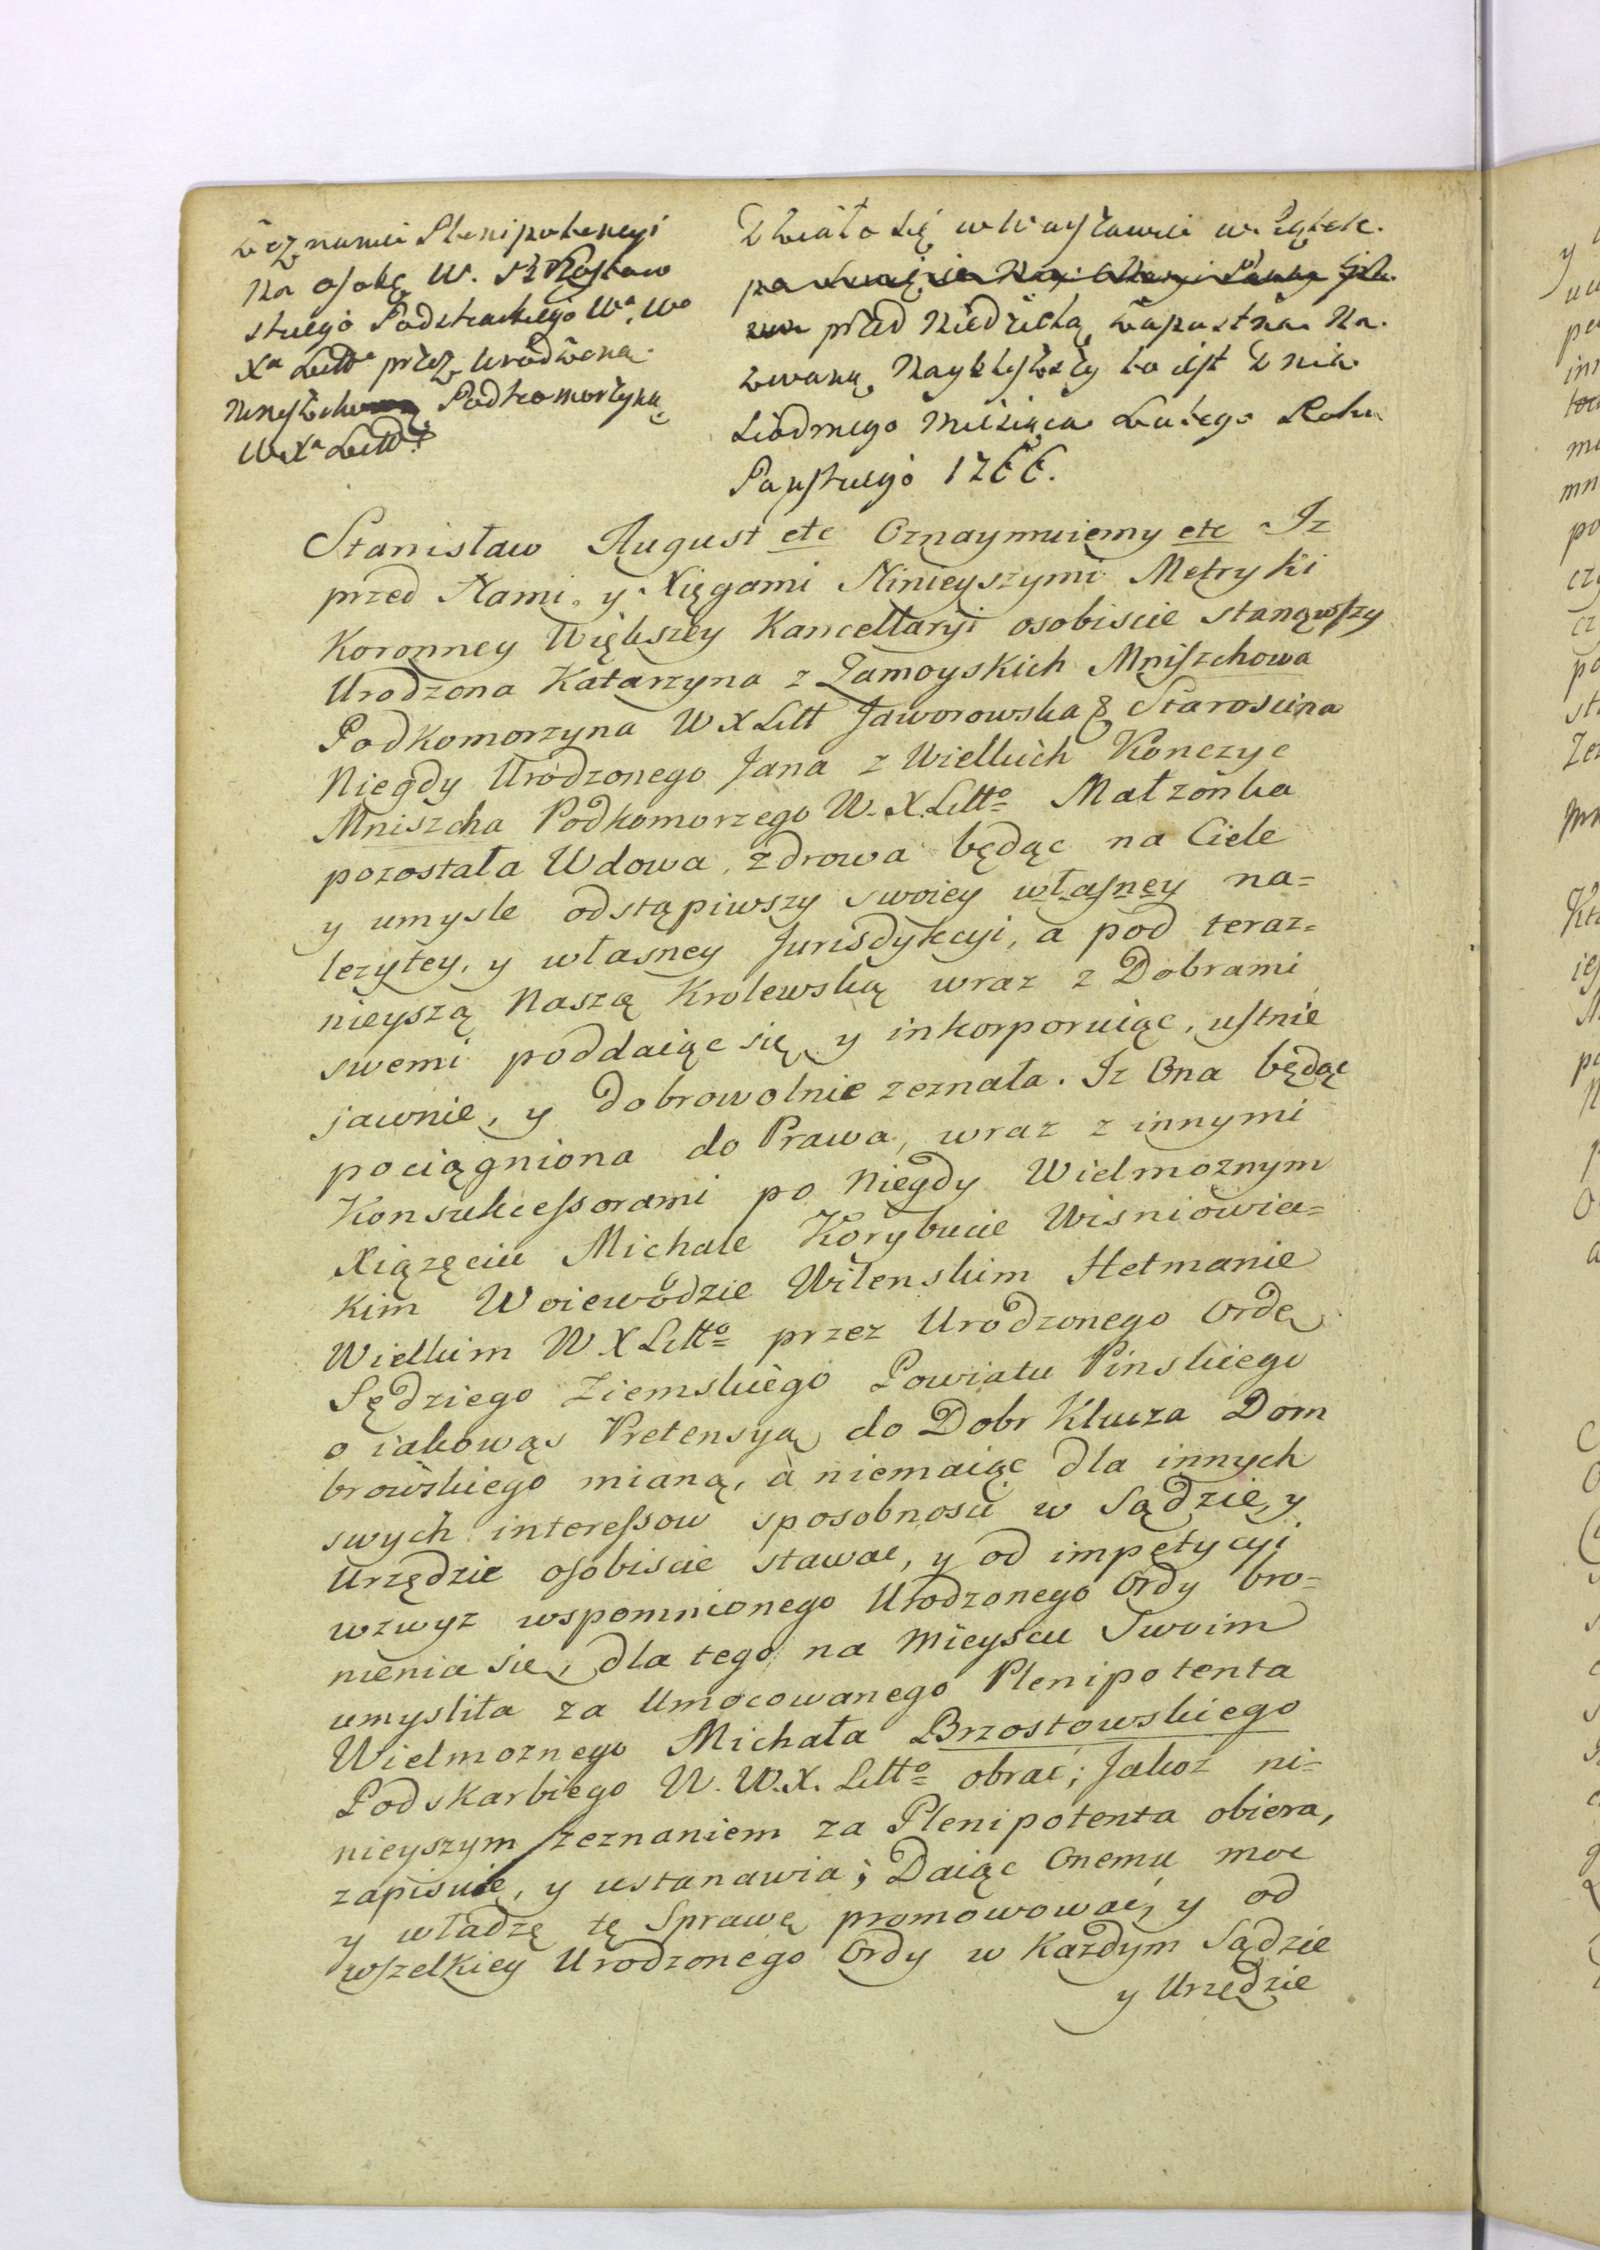 Zeznanie Plenipotencyi
na osobę W. Brzostow
skiego Podskarbiego Wo. Wo
Xa Litto przez Urodzoną
Mniszchową Podkomorzynę
W Xa Litto
Działo się w Warszawie w Piątek
przed Niedzielą Zapustną na-
zwaną Nayblyższy to iest Dnia
Siodmego Miesiąca Lutego Roku
Pańskiego 1766.
Stanisław August etc Oznaymuiemy etc Iz
przed Nami, y Xięgami Ninieyszymi Metryki
Koronney Większey Kancellaryi osobiscie stanąwszy
Urodzona Katarzyna z Zamoyskich Mniszchowa
Podkomorzyna W X Litt Jaworowska & Starościna
Niegdy Urodzonego Jana z Wielkich Konczyc
Mniszcha Podkomorzego W. X. Litto Małzonka
pozostała Wdowa, zdrowa będąc na Ciele
y umysle odstąpiwszy swoiey własney na=
lezytey, y własney Jurisdykcyi, a pod teraz=
nieyszą Naszą Krolewską wraz z Dobrami
swemi poddaiąc się y inkorporuiąc, ustnie
jawnie, y dobrowolnie zeznała. Iz Ona będąc
pociągniona do Prawa, wraz z innymi
Konsukcessorami po Niegdy Wielmoznym
Xiązęciu Michale Korybucie Wisniowiec=
kim Woiewodzie Wilenskim Hetmanie
Wielkim W X Litto przez Urodzonego Ordę
Sędziego Ziemskiego Powiatu Pinskiego
o iakowąs Pretensyą do Dobr Klucza Dom
browskiego mianą, a niemaiąc dla innych
swych interessow sposobnosci w Sądzie y
Urzędzie osobiscie stawac, y od impetycyi
wzwyz wspomnionego Urodzonego Ordy bro=
nienia się, dla tego na mieyscu Swoim
umysliła za Umocowanego Plenipotenta
Wielmoznego Michała Brzostowskiego
Podskarbiego W. W. X. Litto obrać; Jakoz ni=
nieyszym zeznaniem za Plenipotenta obiera,
zapisuie, y ustanawia; Daiąc Onemu moc
y władzę tę Sprawę promowować, y od
wszelkiey Urodzonego Ordy w Kazdym Sądzie
y Urzędzie